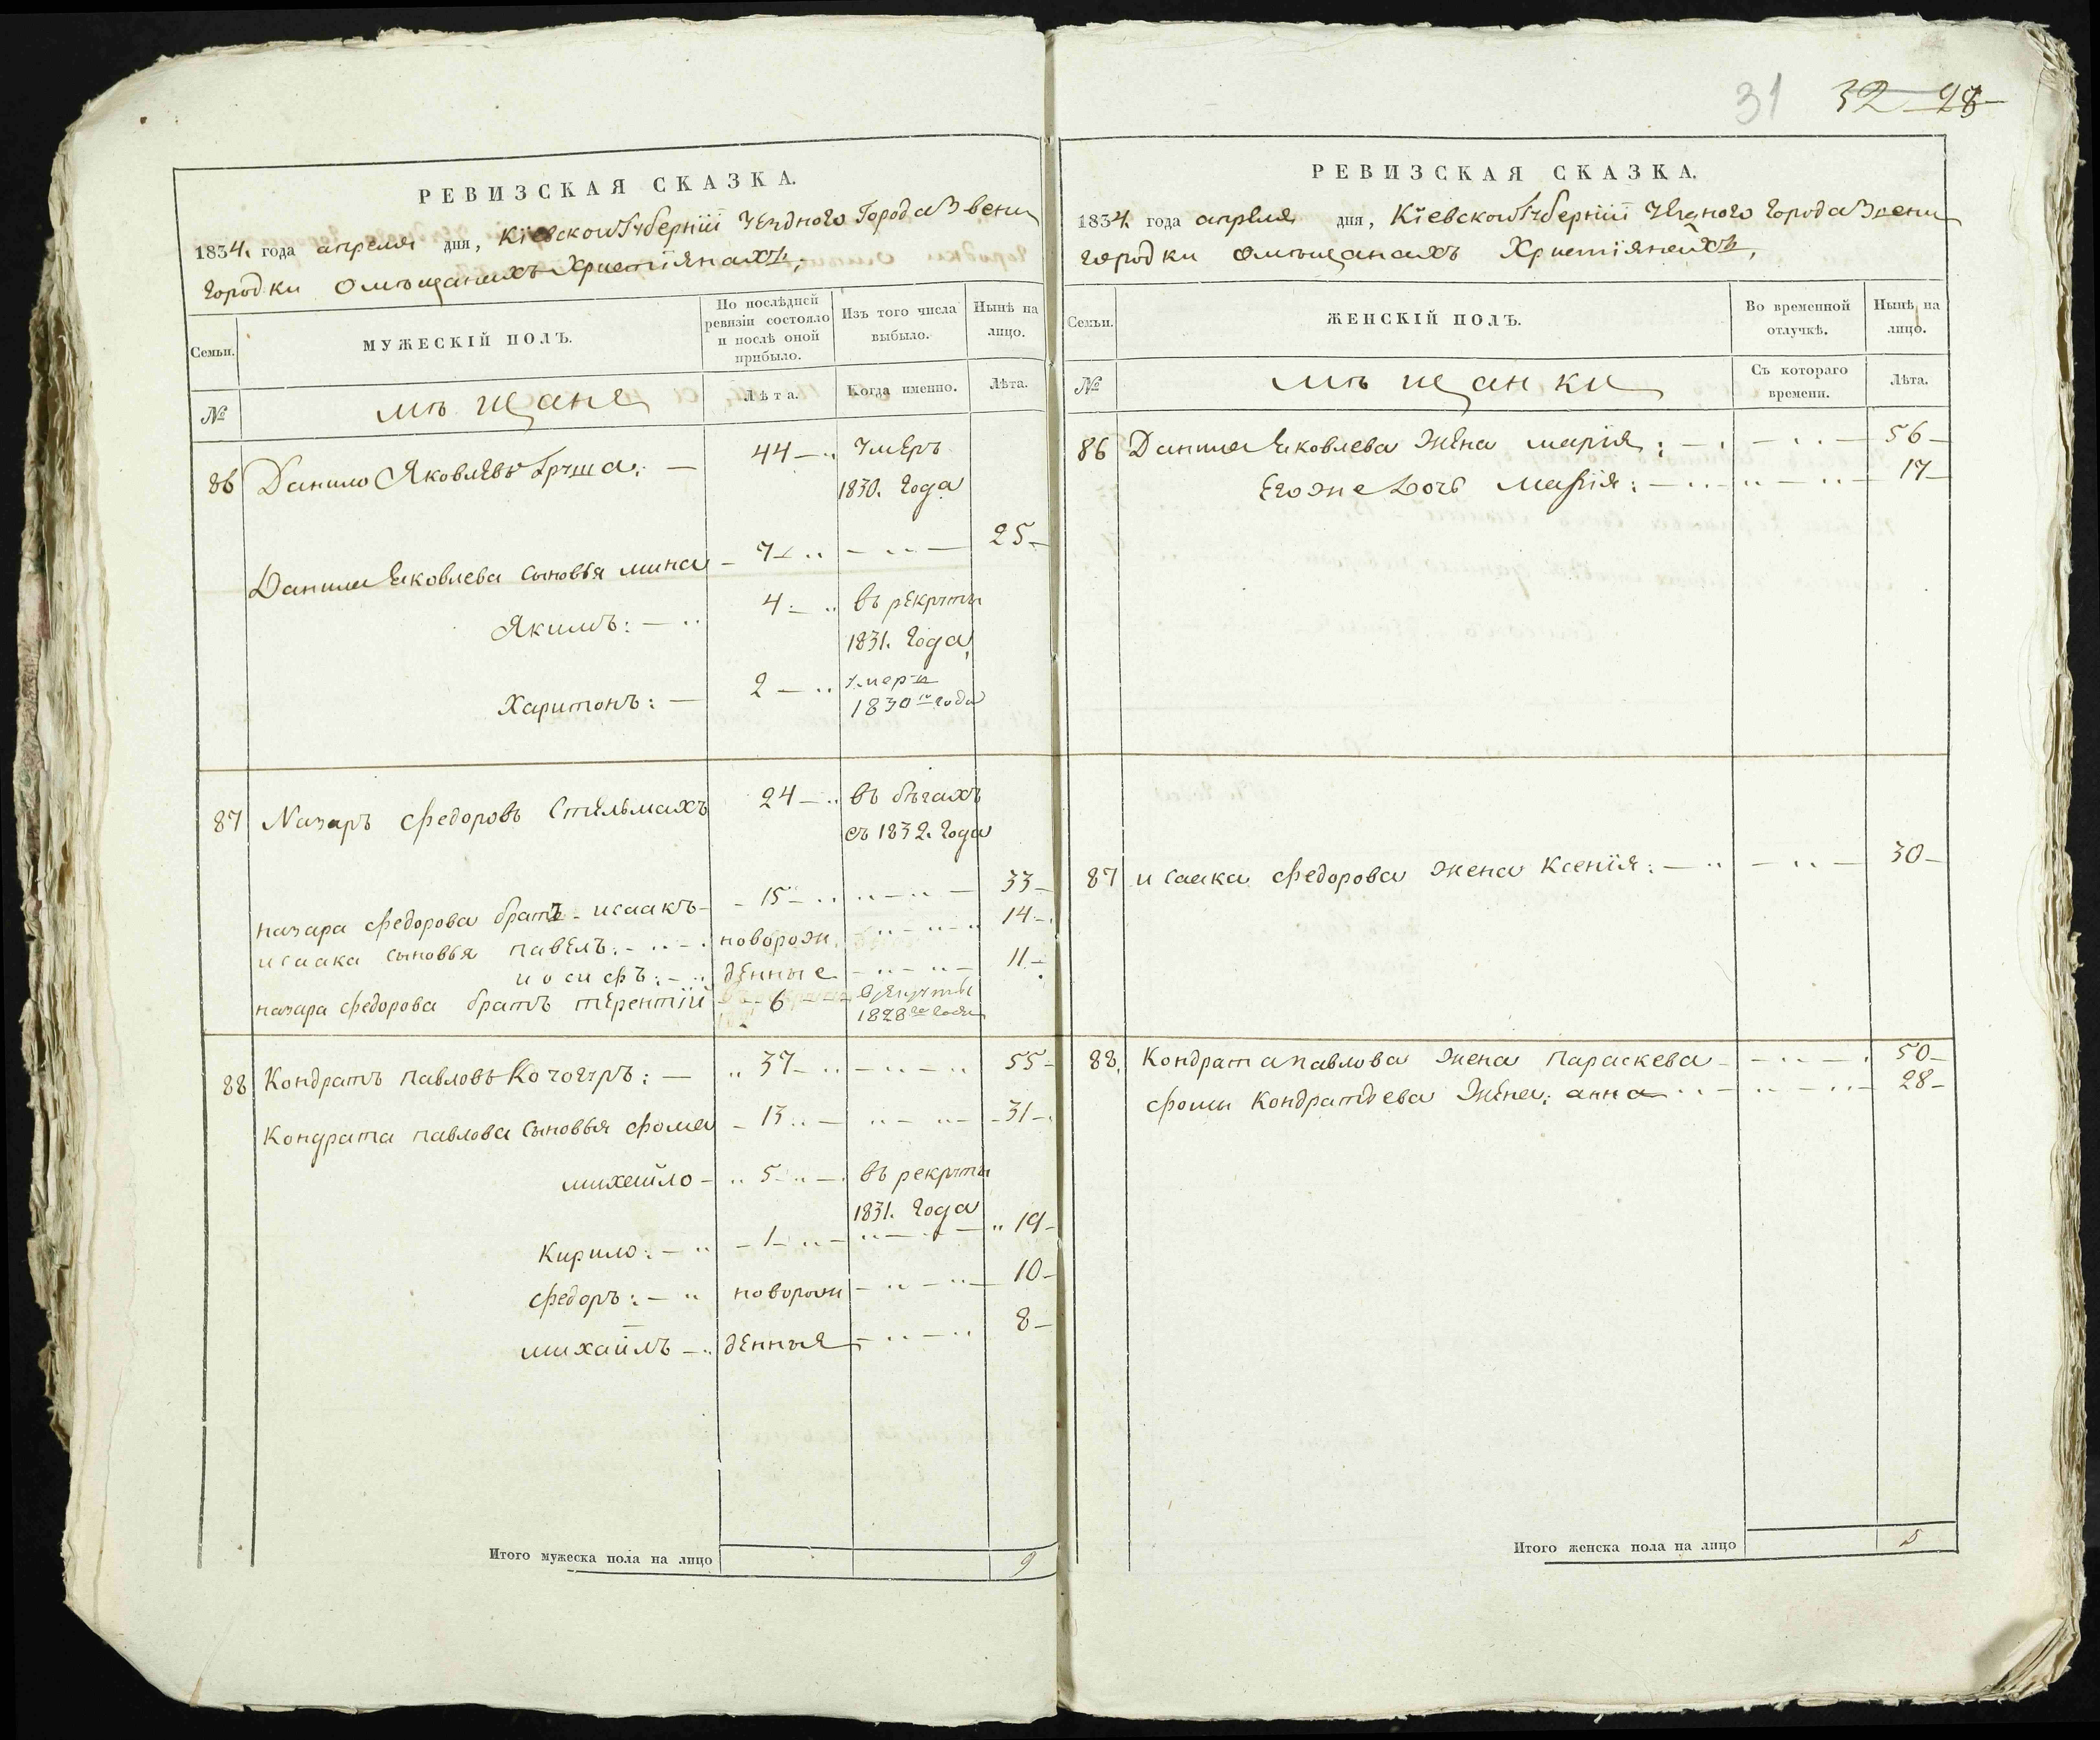 31 32 28
РЕВИЗСКАЯ СКАЗКА.
1834. года апреля дня, Кіевской Губерніи Уезднаго Города Звени
городки О мѣщанахъ Христіянахъ,
Семьи.
МУЖЕСКІЙ ПОЛЪ.
По послѣдней
ревизіи состояло
и послѣ оной
прибыло.
Изъ того числа
выбыло.
Нынѣ на
лицо.
№
мѣщане
Лѣта.
Когда именно.
Лѣта.
86 Данило Яковлевъ Груша: 44 умеръ
1830. года
Данила Яковлева сыновья Мина 7 25
Якимъ: 4 въ рекруты
1831. года
Харитонъ: 2 умеръ
1830го года
87 Назаръ Федоровъ Стельмахъ 24 въ бѣгахъ
съ 1832. года
назара Федорова братъ исаакъ 15 33
исаака сыновья павелъ: новорож 14
иосифъ: денные 11
назара Федорова братъ терентій 6 в рекруты
1828го года
88 Кондратъ павловъ Кочогуръ: 37 55
Кондрата павлова сыновья Фома 13 31
михайло 5 въ рекруты
1831. года
Кирило: 1 19
Федоръ: новорож 10
михаилъ денныя 8
Итого мужеска пола на лицо 9
РЕВИЗСКАЯ СКАЗКА.
1834. года апреля дня, Кіевской Губерніи Уезднаго Города Звени
городки О мѣщанахъ Христіянахъ,
Семьи.
ЖЕНСКІЙ ПОЛЪ.
Во временной
отлучкѣ.
Нынѣ на
лицо.
№
мѣщанки
Съ котораго
времени.
Лѣта.
86 Данила Яковлева жена марія: 56
Его же дочь Марія: 17
87 исаака Федорова жена Ксенія: 30
88. Кондрата павлова жена параскева 50
Фомы Кондратьева жена: анна 28
Итого женска пола на лицо 5